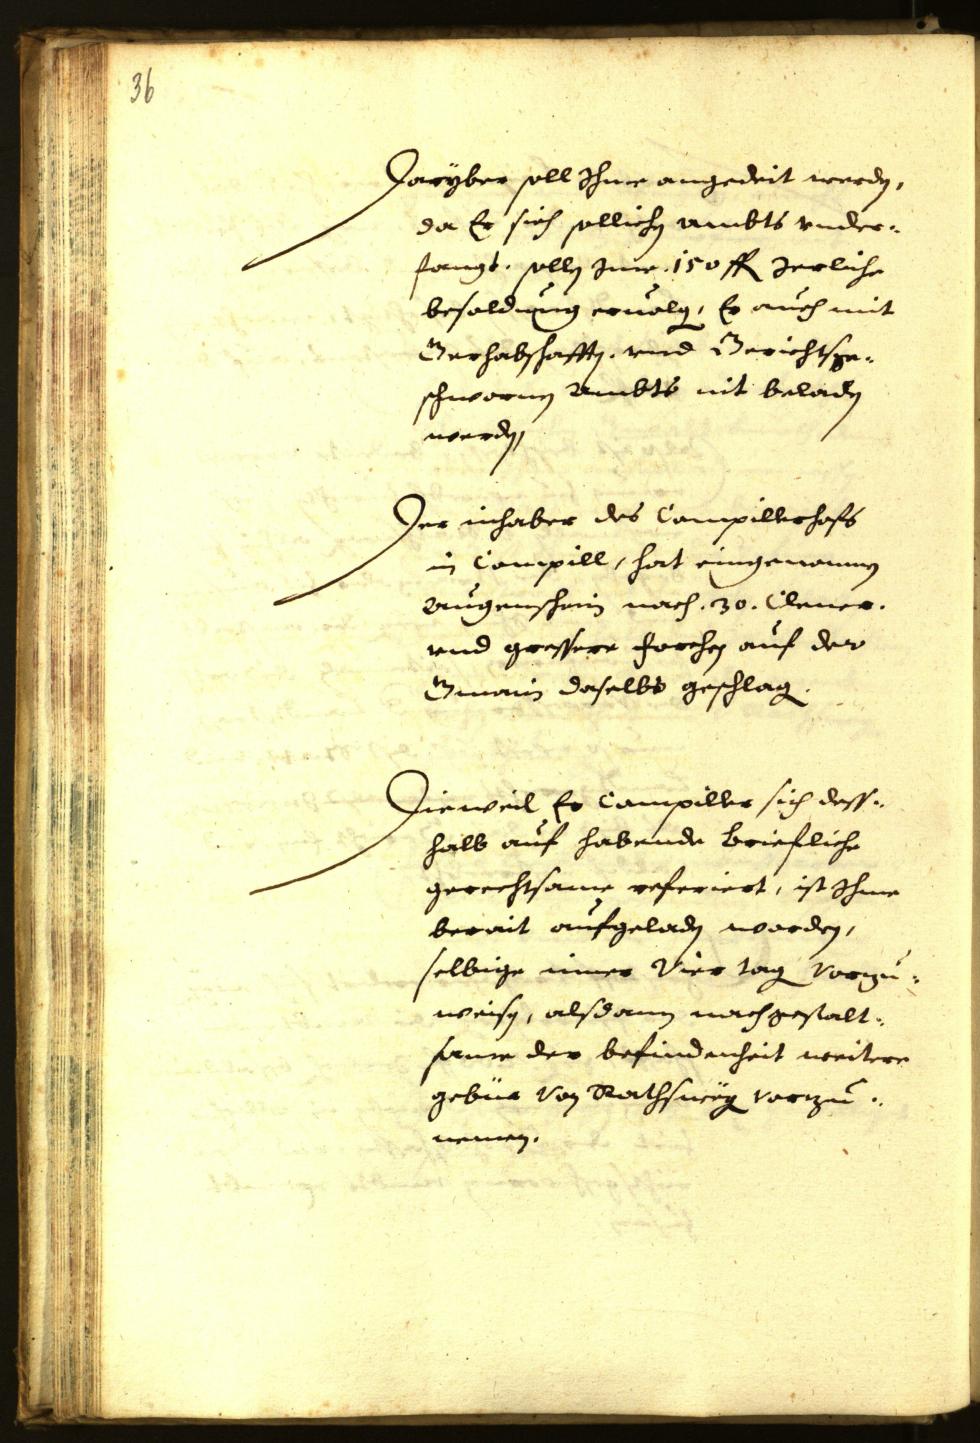 36
Darÿber soll Ihme angedeit werden,
da Er sich sollichen ambts vnder-
fangt. sollen Ime. 150 fl Jerliche
besoldung ervolgen, Er auch mit
Gerhabschafften. vnd Gerichtsge-
schwornen Ambts nit beladen
werden,
Der inhaber des Campillerhofs
in Campill, hat eingenomnen
Augenschein nach. 30. Clener.
vnd grossere forchen auf der
Gmain daselbs geschlagen.
Dieweil Er Campiller sich dess-
halb auf habende briefliche
gerechtsame referiert, ist Ihme
berait aufgeladen worden,
selbige inner Vier tagen vorzu-
weisen, alsdann nach gestalt-
same der befindenheit weitere
gebür von Rathswegen vorzu-
nemen.